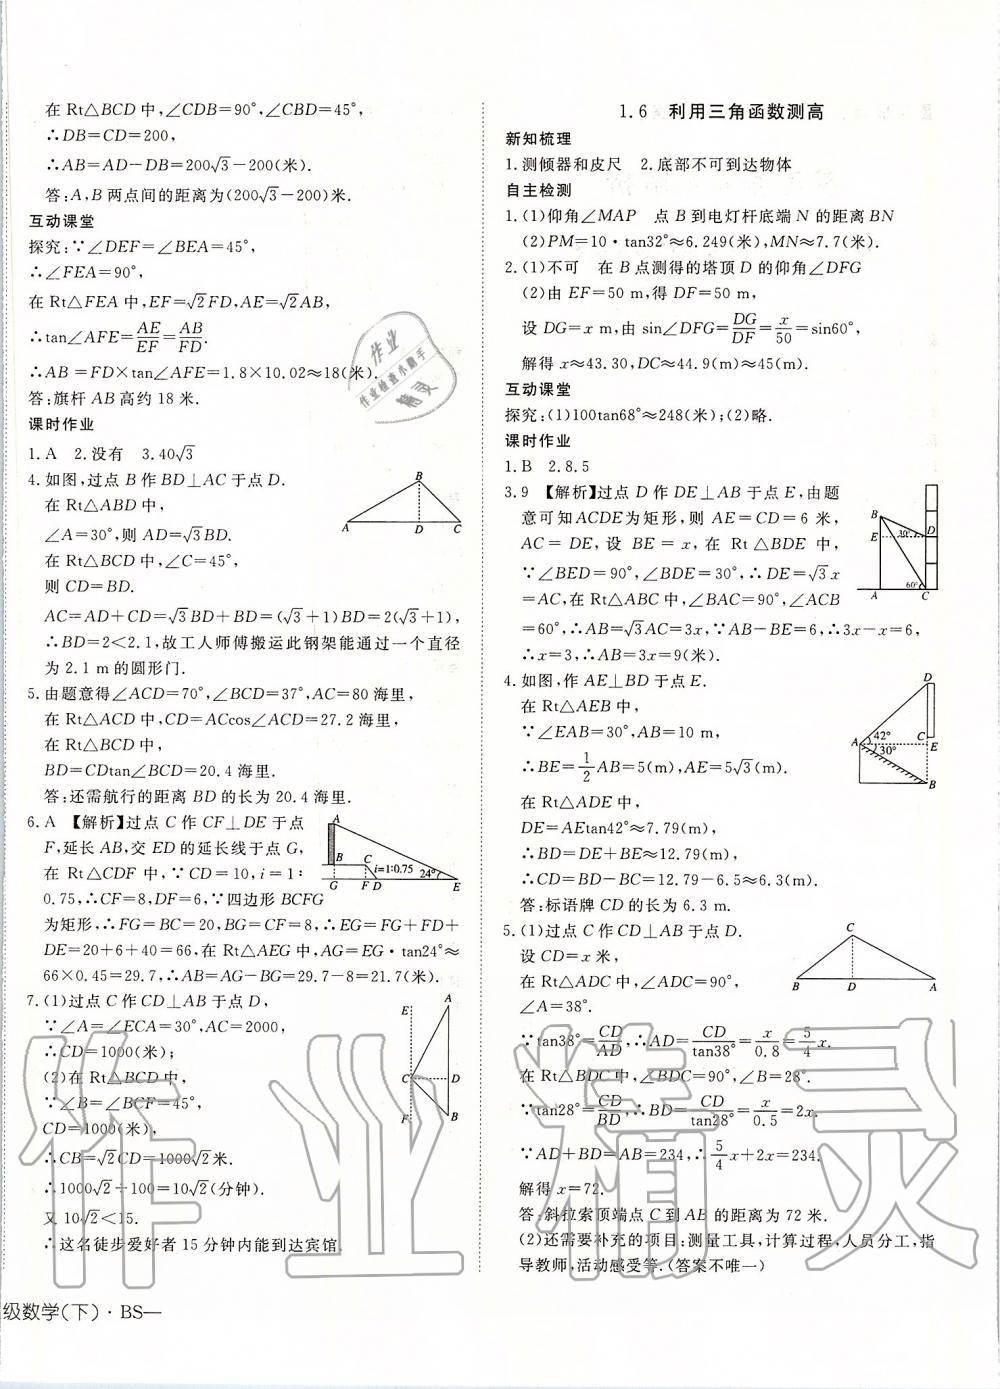 在 Rt△BCD 中,∠CDB=90°,∠CBD=45°,
∴DB=CD=200,
∴AB=AD-DB=200√3-200(米).
答:A,B 两点间的距离为(200√3-200)米.
互动课堂
探究:∵∠DEF=∠BEA=45°,
∴∠FEA=90°,
在 Rt△FEA 中,EF=√2FD,AE=√2AB,
∴tan∠AFE=AE/EF=AB/FD.
∴AB=FD×tan∠AFE=1.8×10.02≈18(米).
答:旗杆 AB 高约 18 米.
课时作业
1.A 2.没有 3.40√3
4.如图,过点 B 作 BD⊥AC 于点 D.
在 Rt△ABD 中,
∠A=30°,则 AD=√3BD.
在 Rt△BCD 中,∠C=45°,
则 CD=BD.
AC=AD+CD=√3BD+BD=(√3+1)BD=2(√3+1),
∴BD=2<2.1,故工人师傅搬运此钢架能通过一个直径
为 2.1 m 的圆形门.
B
A D C
5.由题意得∠ACD=70°,∠BCD=37°,AC=80 海里,
在 Rt△ACD 中,CD=ACcos∠ACD=27.2 海里,
在 Rt△BCD 中,
BD=CDtan∠BCD=20.4 海里.
答:还需航行的距离 BD 的长为 20.4 海里.
6.A 【解析】过点 C 作 CF⊥DE 于点
F,延长 AB,交 ED 的延长线于点 G,
在 Rt△CDF 中,∵CD=10,i=1:
0.75,∴CF=8,DF=6,∵四边形 BCFG
为矩形,∴FG=BC=20,BG=CF=8,∴EG=FG+FD+
DE=20+6+40=66,在 Rt△AEG 中,AG=EG·tan24°≈
66×0.45=29.7,∴AB=AG-BG=29.7-8=21.7(米).
A
B C i=1:0.75 24°
G F D E
7.(1)过点 C 作 CD⊥AB 于点 D,
∵∠A=∠ECA=30°,AC=2000,
∴CD=1000(米);
(2)在 Rt△BCD 中,
∵∠B=∠BCF=45°,
CD=1000(米),
∴CB=√2CD=1000√2米.
∴1000√2÷100=10√2(分钟).
又 10√2<15.
∴这名徒步爱好者 15 分钟内能到达宾馆.
E A
C D
F B
级数学(下)·BS—
1.6 利用三角函数测高
新知梳理
1.测倾器和皮尺 2.底部不可到达物体
自主检测
1.(1)仰角∠MAP 点 B 到电灯杆底端 N 的距离 BN
(2)PM=10·tan32°≈6.249(米),MN≈7.7(米).
2.(1)不可 在 B 点测得的塔顶 D 的仰角∠DFG
(2)由 EF=50 m,得 DF=50 m,
设 DG=x m,由 sin∠DFG=DG/DF=x/50=sin60°,
解得 x≈43.30,DC≈44.9(m)≈45(m).
互动课堂
探究:(1)100tan68°≈248(米);(2)略.
课时作业
1.B 2.8.5
3.9 【解析】过点 D 作 DE⊥AB 于点 E,由题
意可知ACDE为矩形,则 AE=CD=6 米,
AC=DE,设 BE=x,在 Rt△BDE 中,
∵∠BED=90°,∠BDE=30°,∴DE=√3x
=AC,在 Rt△ABC 中,∠BAC=90°,∠ACB
=60°,∴AB=√3AC=3x,∵AB-BE=6,∴3x-x=6,
∴x=3,∴AB=3x=9(米).
B
E 30° D
60°
A C
4.如图,作 AE⊥BD 于点 E.
在 Rt△AEB 中,
∵∠EAB=30°,AB=10 m,
∴BE=1/2AB=5(m),AE=5√3(m).
在 Rt△ADE 中,
DE=AEtan42°≈7.79(m),
∴BD=DE+BE=12.79(m),
∴CD=BD-BC=12.79-6.5≈6.3(m).
答:标语牌 CD 的长为 6.3 m.
D
42° C
A 30° E
B
5.(1)过点 C 作 CD⊥AB 于点 D.
设 CD=x 米,
在 Rt△ADC 中,∠ADC=90°,
∠A=38°.
∵tan38°=CD/AD,∴AD=CD/tan38°=x/0.8=5/4x.
在 Rt△BDC 中,∠BDC=90°,∠B=28°.
∵tan28°=CD/BD,∴BD=CD/tan28°=x/0.5=2x.
∵AD+BD=AB=234,∴5/4x+2x=234.
解得 x=72.
答:斜拉索顶端点 C 到 AB 的距离为 72 米.
(2)还需要补充的项目:测量工具,计算过程,人员分工,指
导教师,活动感受等.(答案不唯一)
C
B D A
作业
作业检查小助手
精灵
作业精灵